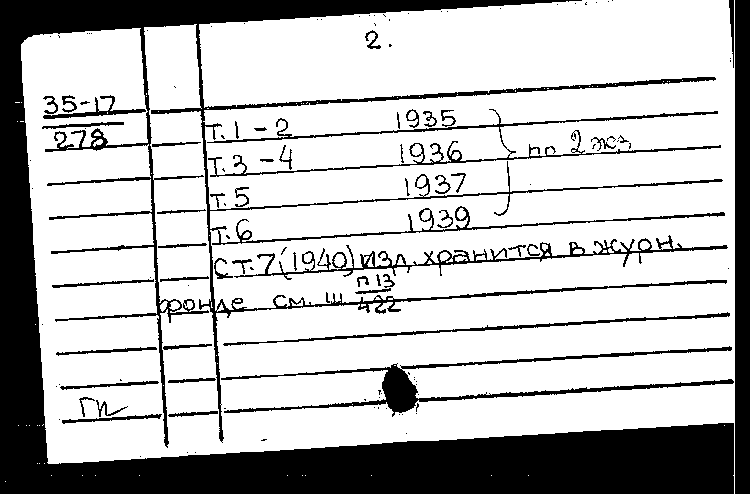 2.
35-17
278
т.1-2 1935
т.3-4 1936 по 2 экз
т.5 1937
т.6 1939
с т.7(1940) изд. хранится в журн.
фонде см. ш п 13
422
ГП